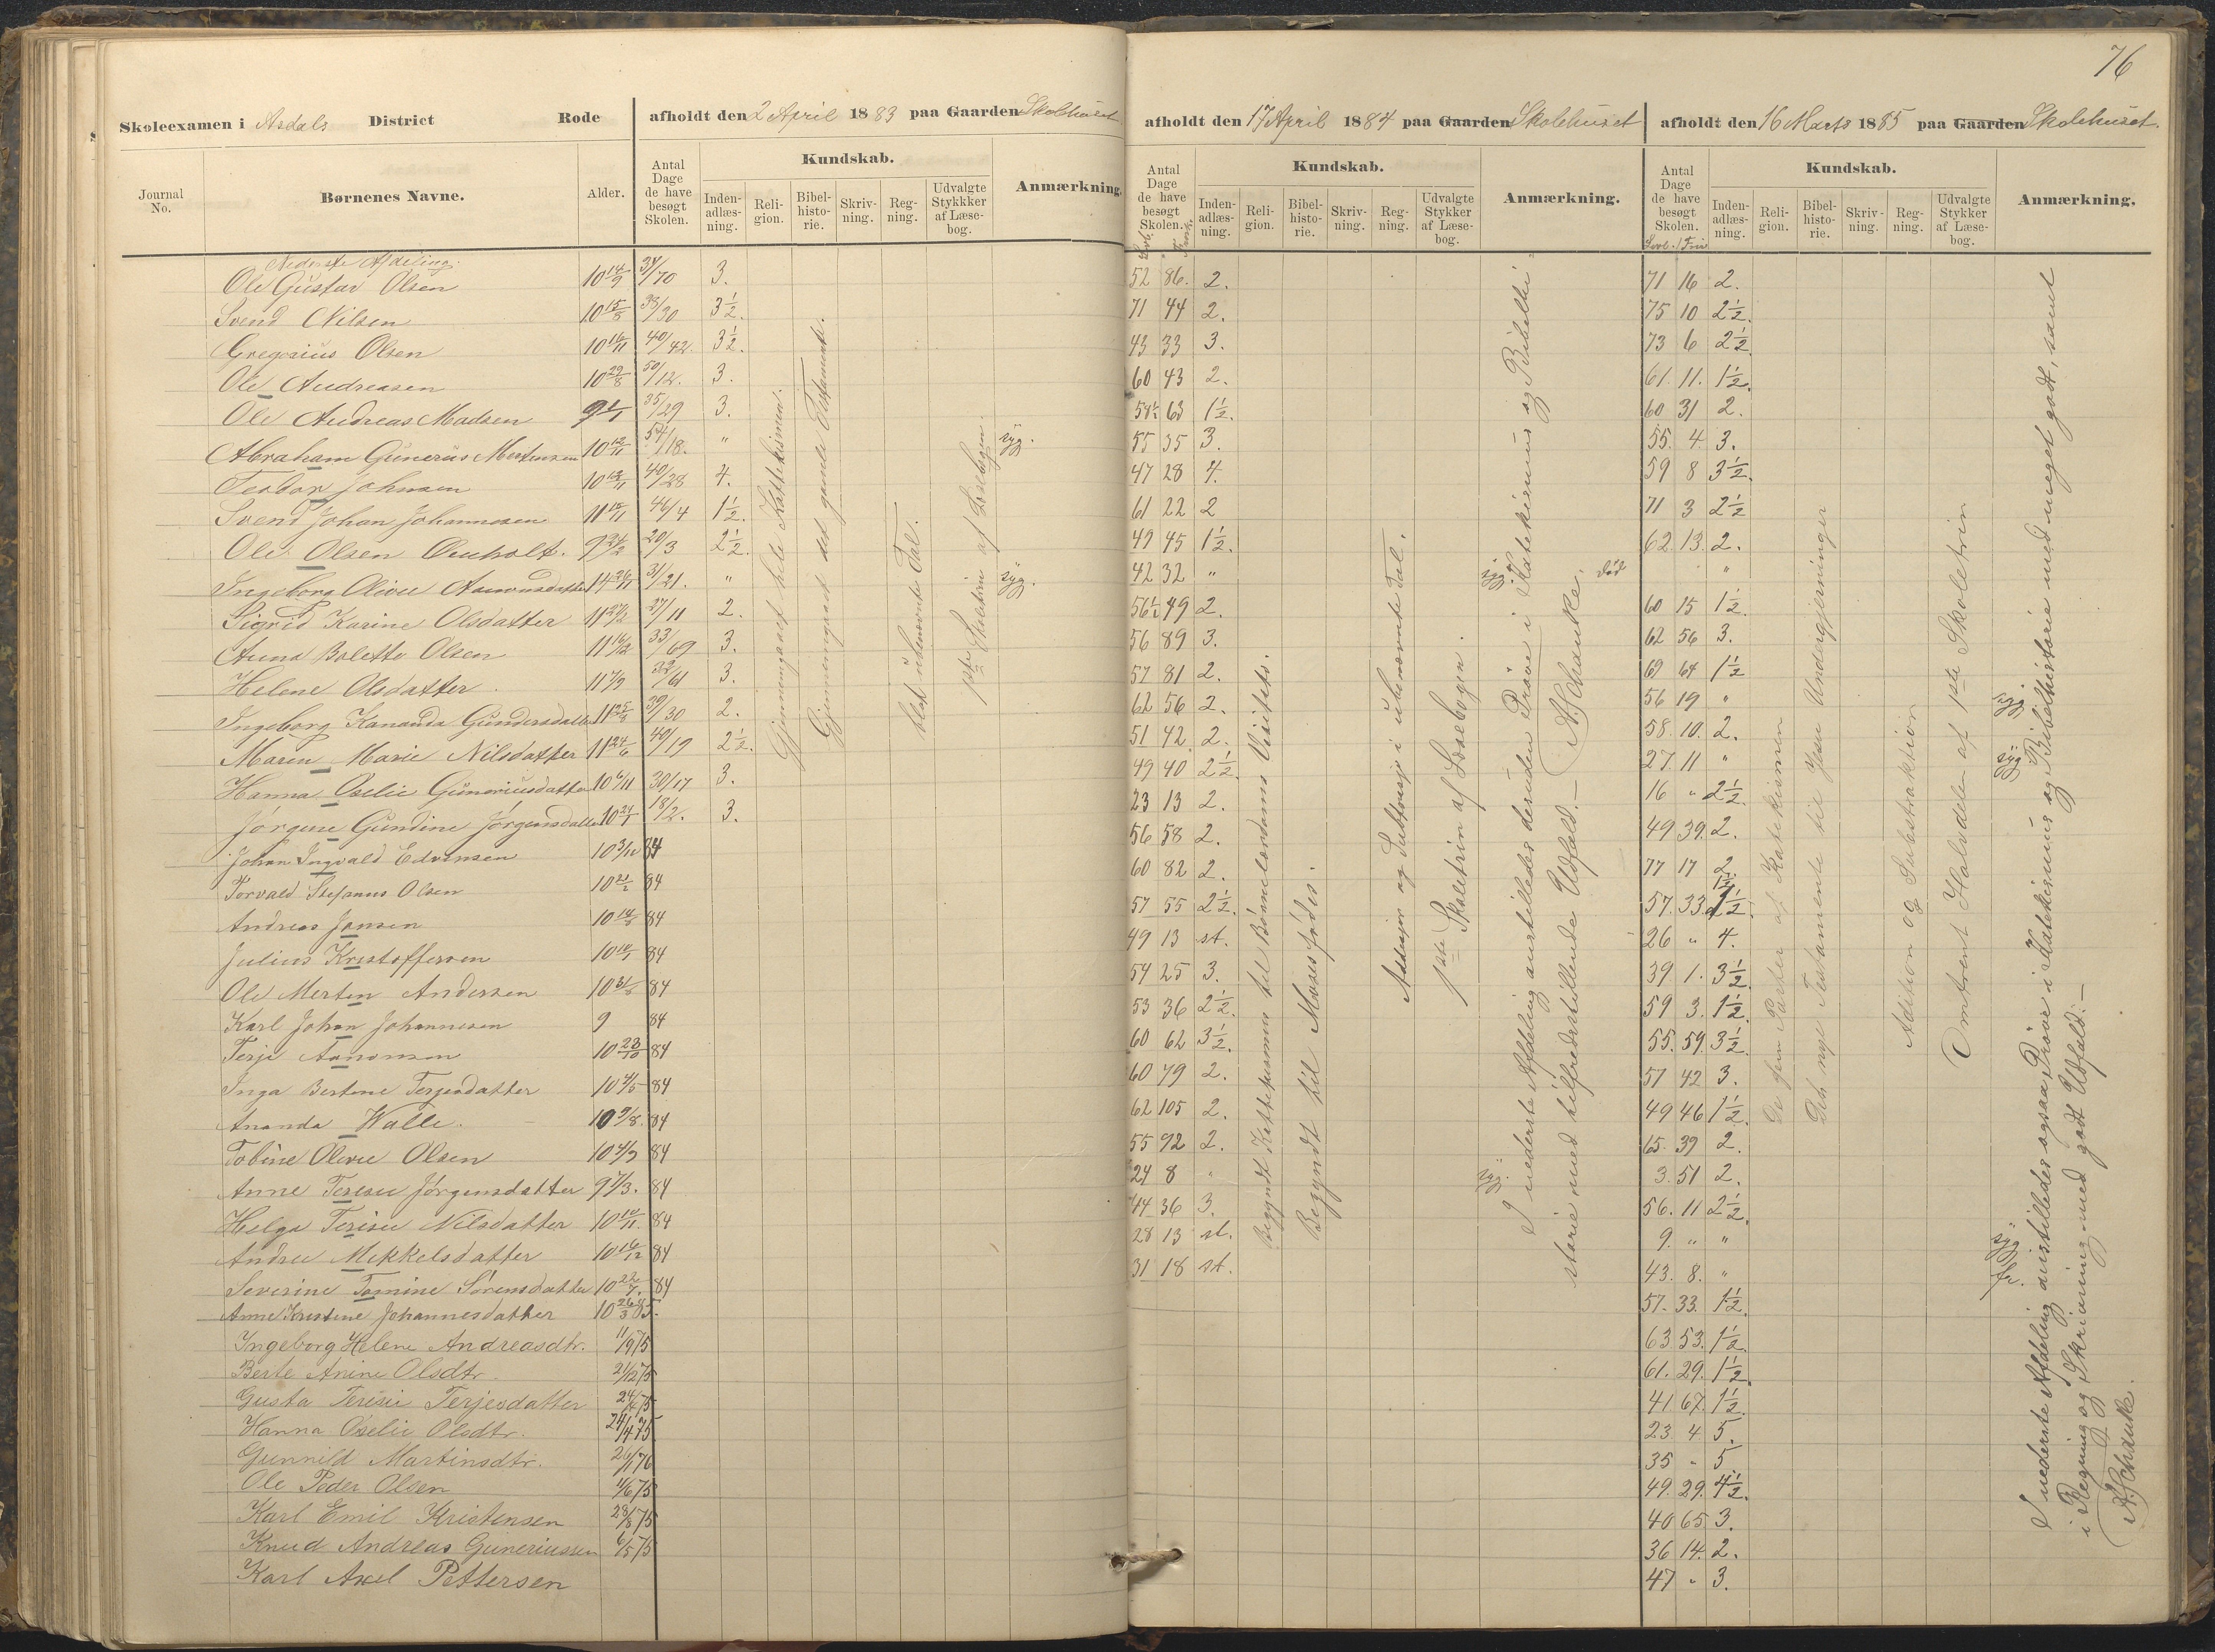 76
Skoleexamen i Asdals District Rode afholdt den 2 April 1883 paa Gaarden Skolehuset afholdt den 17 April 1884 paa Gaarden Skolehuset afholdt den 16 Marts 1885 paa Gaarden Skolehuset.
Journal No. Børnenes Navne. Alder. Antal Dage de have besøgt Skolen. Kundskab. Inden-adlæs-ning. Reli-gion. Bibel-histo-rie. Skriv-ning. Reg-ning. Udvalgte Stykkker af Læse-bog. Anmærkning.
Antal Dage de have besøgt Skolen. Kundskab. Inden-adlæs-ning. Reli-gion. Bibel-histo-rie. Skriv-ning. Reg-ning. Udvalgte Stykker af Læse-bog. Anmærkning.
Antal Dage de have besøgt Skolen. Kundskab. Inden-adlæs-ning. Reli-gion. Bibel-histo-rie. Skriv-ning. Reg-ning. Udvalgte Stykker af Læse-bog. Anmærkning.
Nederste Afdeling.
Ole Gustav Olsen 10 14/9 34/70 3. 52 86. 2. 71 16 2.
Svend Nilsen 10 15/8 38/30 3½. 71 44 2. 75 10 2½.
Gregorius Olsen 10 16/11 40/42. 3½. 43 33 3. 73 6 2½
Ole Andreasen 10 29/8 50/12. 3. 60 43 2. 61. 11. 1½.
Ole Andreas Madsen 9 1/1 35/29 3. 54½ 63 1½. 60 31 2.
Abraham Gunerius Mortensen 10 12/11 54/18. " syg. 55 35 3. 55. 4. 3.
Teodor Johnsen 10 13/11 40/28 4. 47 28 4. 59 8 3½.
Svend Johan Johannesen 11 15/11 46/4 1½. 61 22 2 71 3 2½
Ole Olsen Ouholt. 9 24/2 20/3 2½. 49 45 1½. 62. 13. 2.
Ingeborg Olivie Aanonsdatter 14 26/11 31/21. " syg. 42 32 " syg. død "
Sigrid Karine Olsdatter 11 27/2 37/11 2. 56½ 49 2. 60 15 1½.
Anna Bolette Olsen 11 16/2 33/69 3. 56 89 3. 62 56 3.
Helene Olsdatter 11 7/9 32/61 3. 57 81 2. 69 64 1½
Ingeborg Kananda Gundersdatter 11 25/8 39/30 2. 62 56 2. 56 19 " syg
Maren Marie Nilsdatter 11 24/6 40/19 2½. 51 42. 2. 58. 10. 2.
Hanna Oselie Guneriusdatter 10 6/11 30/17 3. 49 40 2½. 27. 11 " syg
Jørgine Gundine Jørgensdatter 10 24/1 18/2. 3. 23 13 2. 16 " 2½.
Johan Ingvald Edvensen 10 3/12 84 56 58 2. 49 39. 2.
Torvald Stefanus Olsen 10 21/2 84 60 82 2. 77 17 2.
Andreas Jansen 84 57 55 2½. 57. 33.
Julius Kristoffersen 84 49 13 st. 26 " 4.
Ole Merten Andersen 84 54 25 3. 39 1. 3½.
Karl Johan Johannesen 9 84 53 36 2½. 59 3. 1½.
Terje Aanonsen 10 23/10 84 60 62 3½. 55. 59. 3½.
Inga Bertine Terjesdatter 10 4/5 84 60 79 2. 57 42 3.
Ananda Walle. 10 9/8. 84 62 105 2. 49 46 1½.
Tobine Olivie Olsen 10 4/3 84 55 92 2. 65. 39 2.
Anne Terese Jørgensdatter 9 7/3. 84 24 8 " syg. 3. 51 2.
Helga Terisie Nilsdatter 10 10/11. 84 44 36 3. 56. 11 2½.
Andrea Mikkelsdatter 10 16/12 84 28 13 st. 9. " " syg
Severine Tomine Sørensdatter 10 22/7. 84 31 18 st. 43. 8. " fr.
Anne Kristine Johannesdatter 10 26/3 85. 57. 33. 1½.
Ingeborg Helene Andreasdtr. 11/9 75 63 53. 1½.
Berte Anine Olsdtr. 21/12 75 61. 29. 1½.
Gusta Terisie Terjesdatter 24/4 75 41 67. 1½.
Hanna Oselie Olsdtr. 24/4 75. 23. 4 5.
Gunnild Martinsdtr. 26/1 76 35 " 5
Ole Peder Olsen 4/6 75 49. 29. 4½.
Karl Emil Kristensen 28/8 75 40 65 3.
Knud Andreas Guneriussen 6/5 75 36 14. 2.
Karl Axel Pettersen 47 " 3.
Gjennemgaaet hele Kattekismen.
Gjennemgaaet det gamle Testamente.
blot ubenævnte Tal.
1ste Skoletrin af Læsebogen
Begyndt Kattekismus til Børnelærdoms Visitets.
Begyndt til Moses fødes.
Addisjon og Subtrasj i ubenævnte Tal.
1ste Skoletrin af Læsebogen.
I nederste Afdeling anstilledes desuden Prøve i Katekismus og Bibelhi-
storie med tilfredsstillende Udfald. — A. Schanke.
De fem Parter af Katekismen
Det nye Testamente til Jesu Undergjerninger
Adition og Subestraktion
Omtrent Halvdelen af 1ste Skoletrin
I nederste Afdeling anstilledes ogsaa Prøve i Katekismus og Bibelhistorie med meget godt, samt
i Regning og Skrivning med godt Udfald. —
A. Schanke.